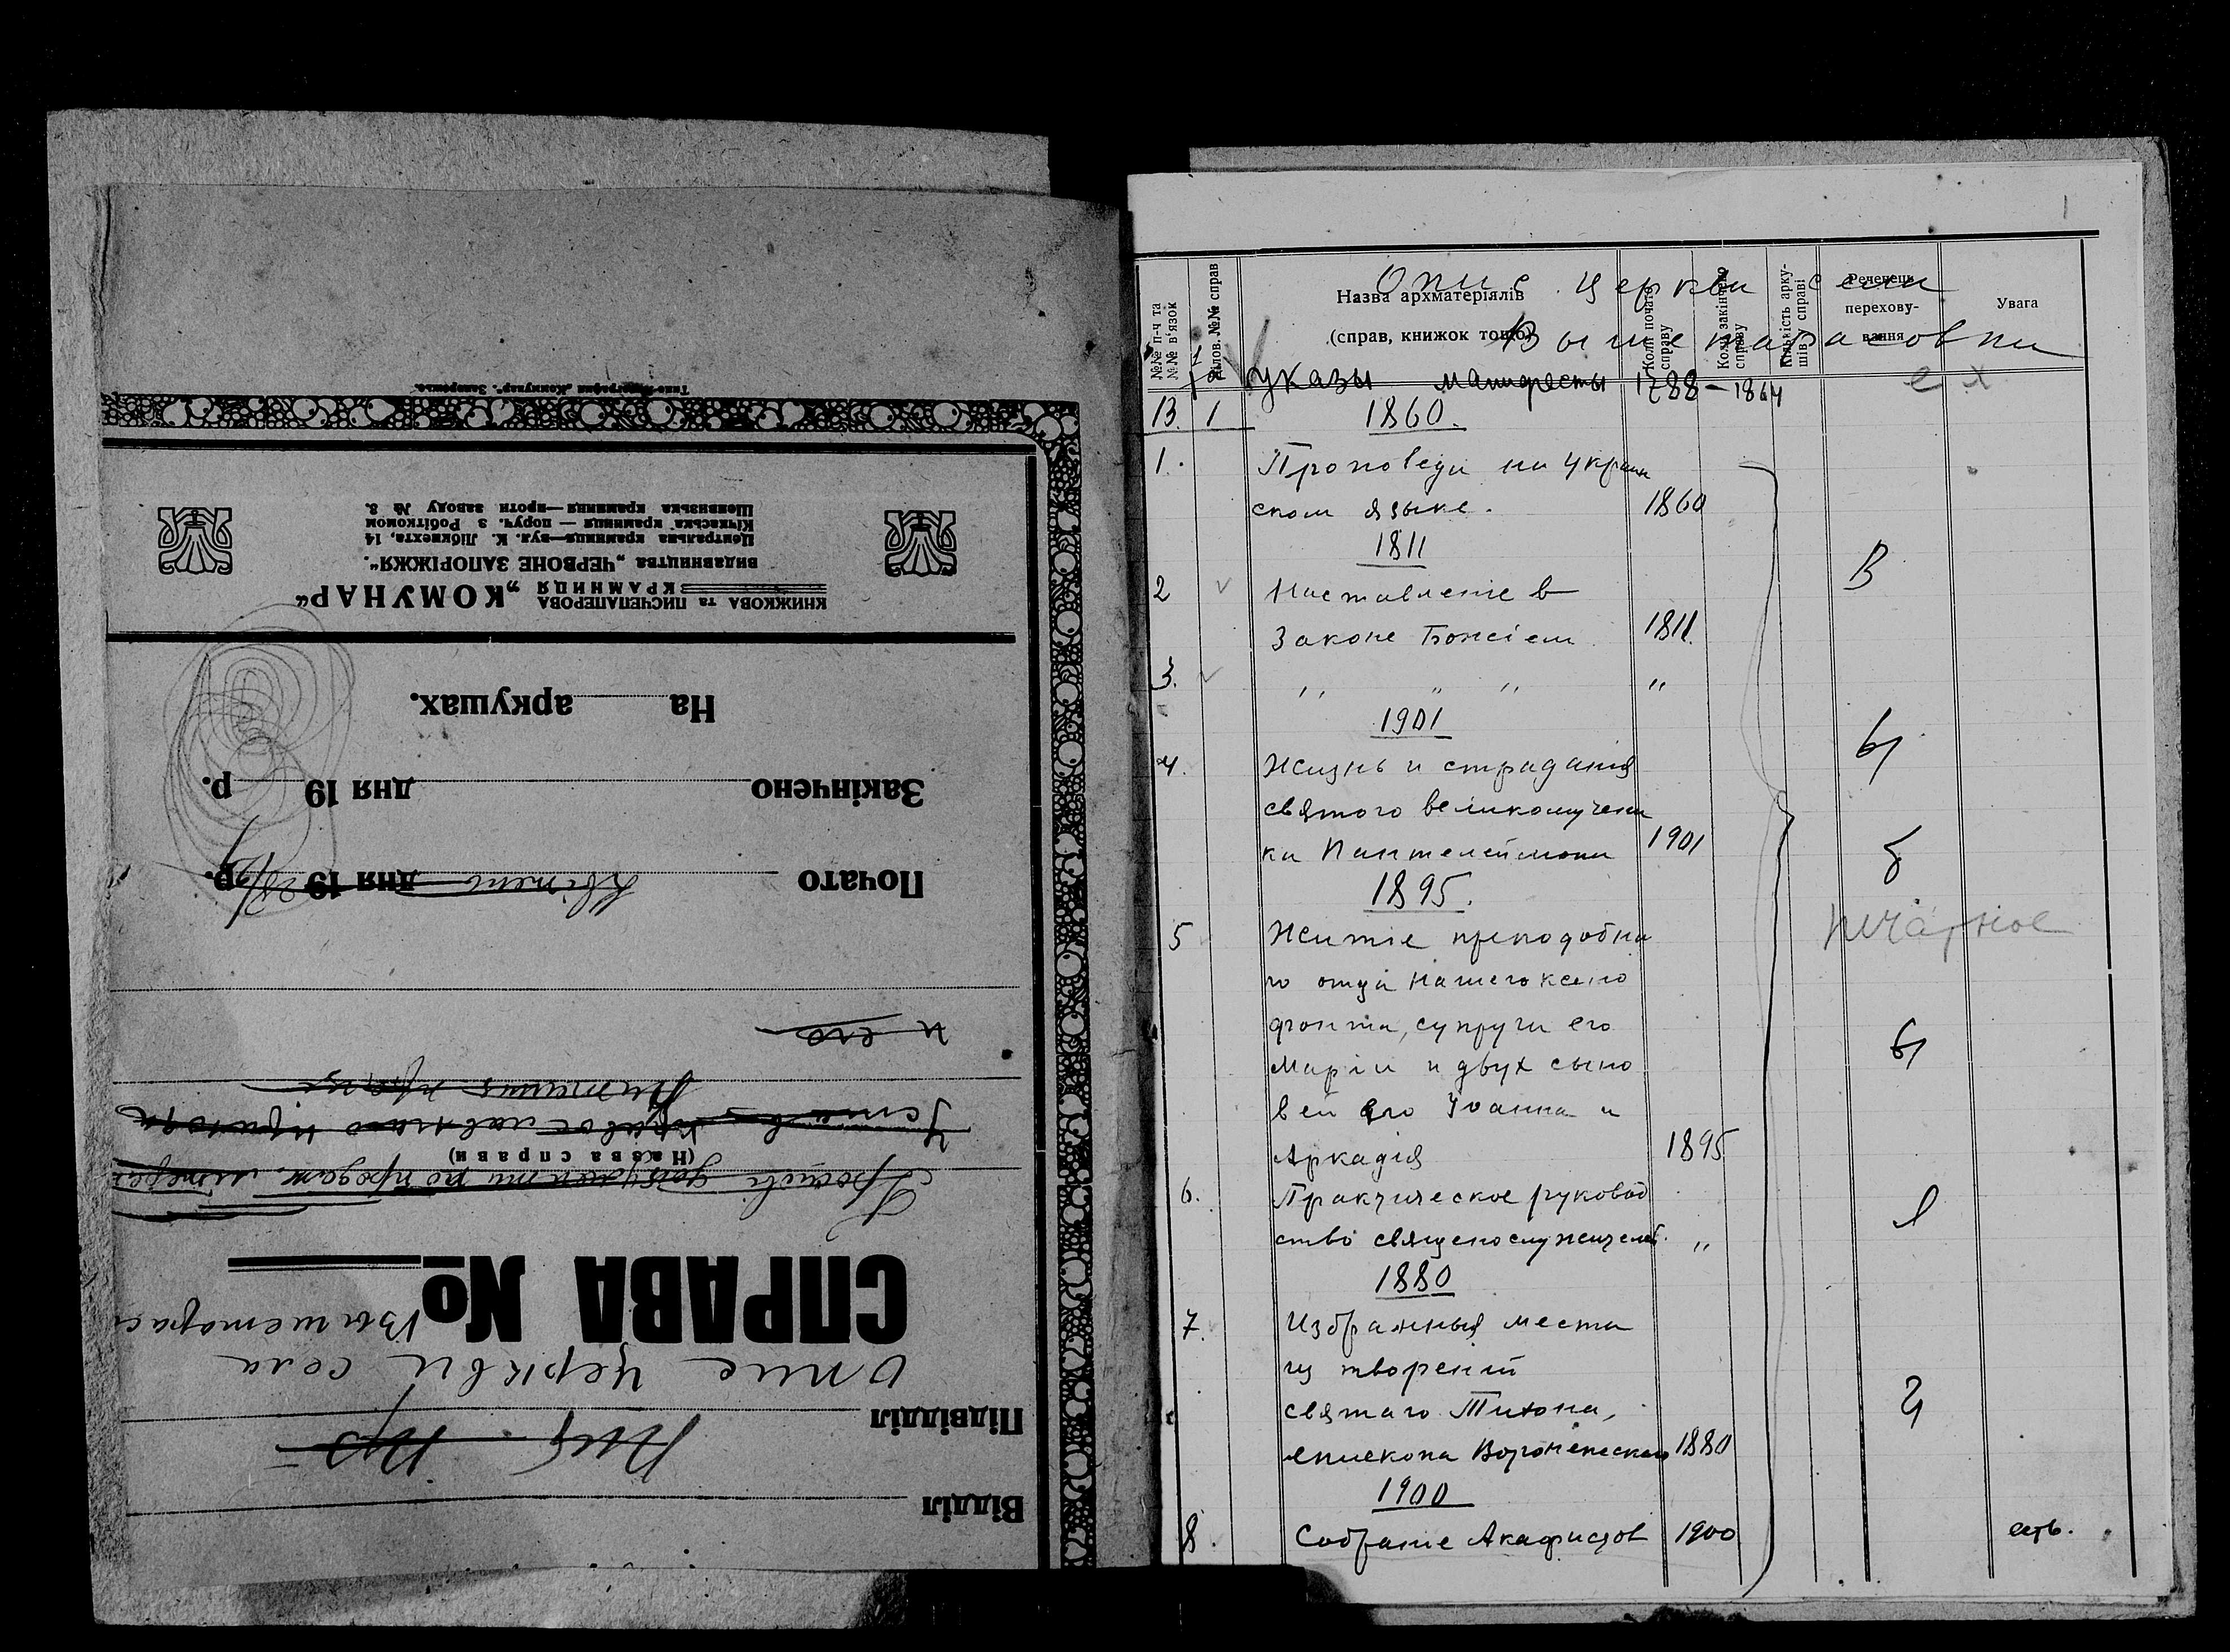 Відділ
Підвділл
Опис церкви села
Вишетарас
СПРАВА №
(Назва справи)
и его
Почато квітень дня 19 р.
Закінчено дня 19 р.
На аркушах.
КНИЖКОВА та ПИСЧЕПАПЕРОВА КРАМНИЦЯ „КОМУНАР“
видавництва „ЧЕРВОНЕ ЗАПОРІЖЖЯ“.
Центральна крамниця—вул. К. Лібкнехта, 14
Кічкаська крамниця — поруч. з Робіткомом
Шенвизька крамниця—проти заводу № 8.
1
Опис церкви села
Вышетарасовки
№№ п-ч та №№ в'язок
Діл­ов. №№ справ
Назва архматеріялів
(справ, книжок тощо)
Коли почато справу
Коли закінчено справу
Кількість аркушів у справі
Реченець перехову-
вання
Увага
Указы манифесты 1788 – 1864
13. 1 1860.
1. Проповеди на украин
ском языке. 1860
1811
В
2 Наставленіе в
Законе Божіем 1811.
3. " " " "
1901
4. Жизнь и страдания
святого великомучени
ка Пантелеймона 1901
1895.
5 Житіе преподобна
го отца нашего Ксено
фонта, супруги его
Маріи и двух сыно
вей его Иоанна и
Аркадія 1895
6. Практическое руковод
ство священослужителей. "
1880
7. Избранныя места
из творений
святаго Тихона,
епископа Воронежскаго 1880
1900
8. Собрание Акафистов 1900 есть.